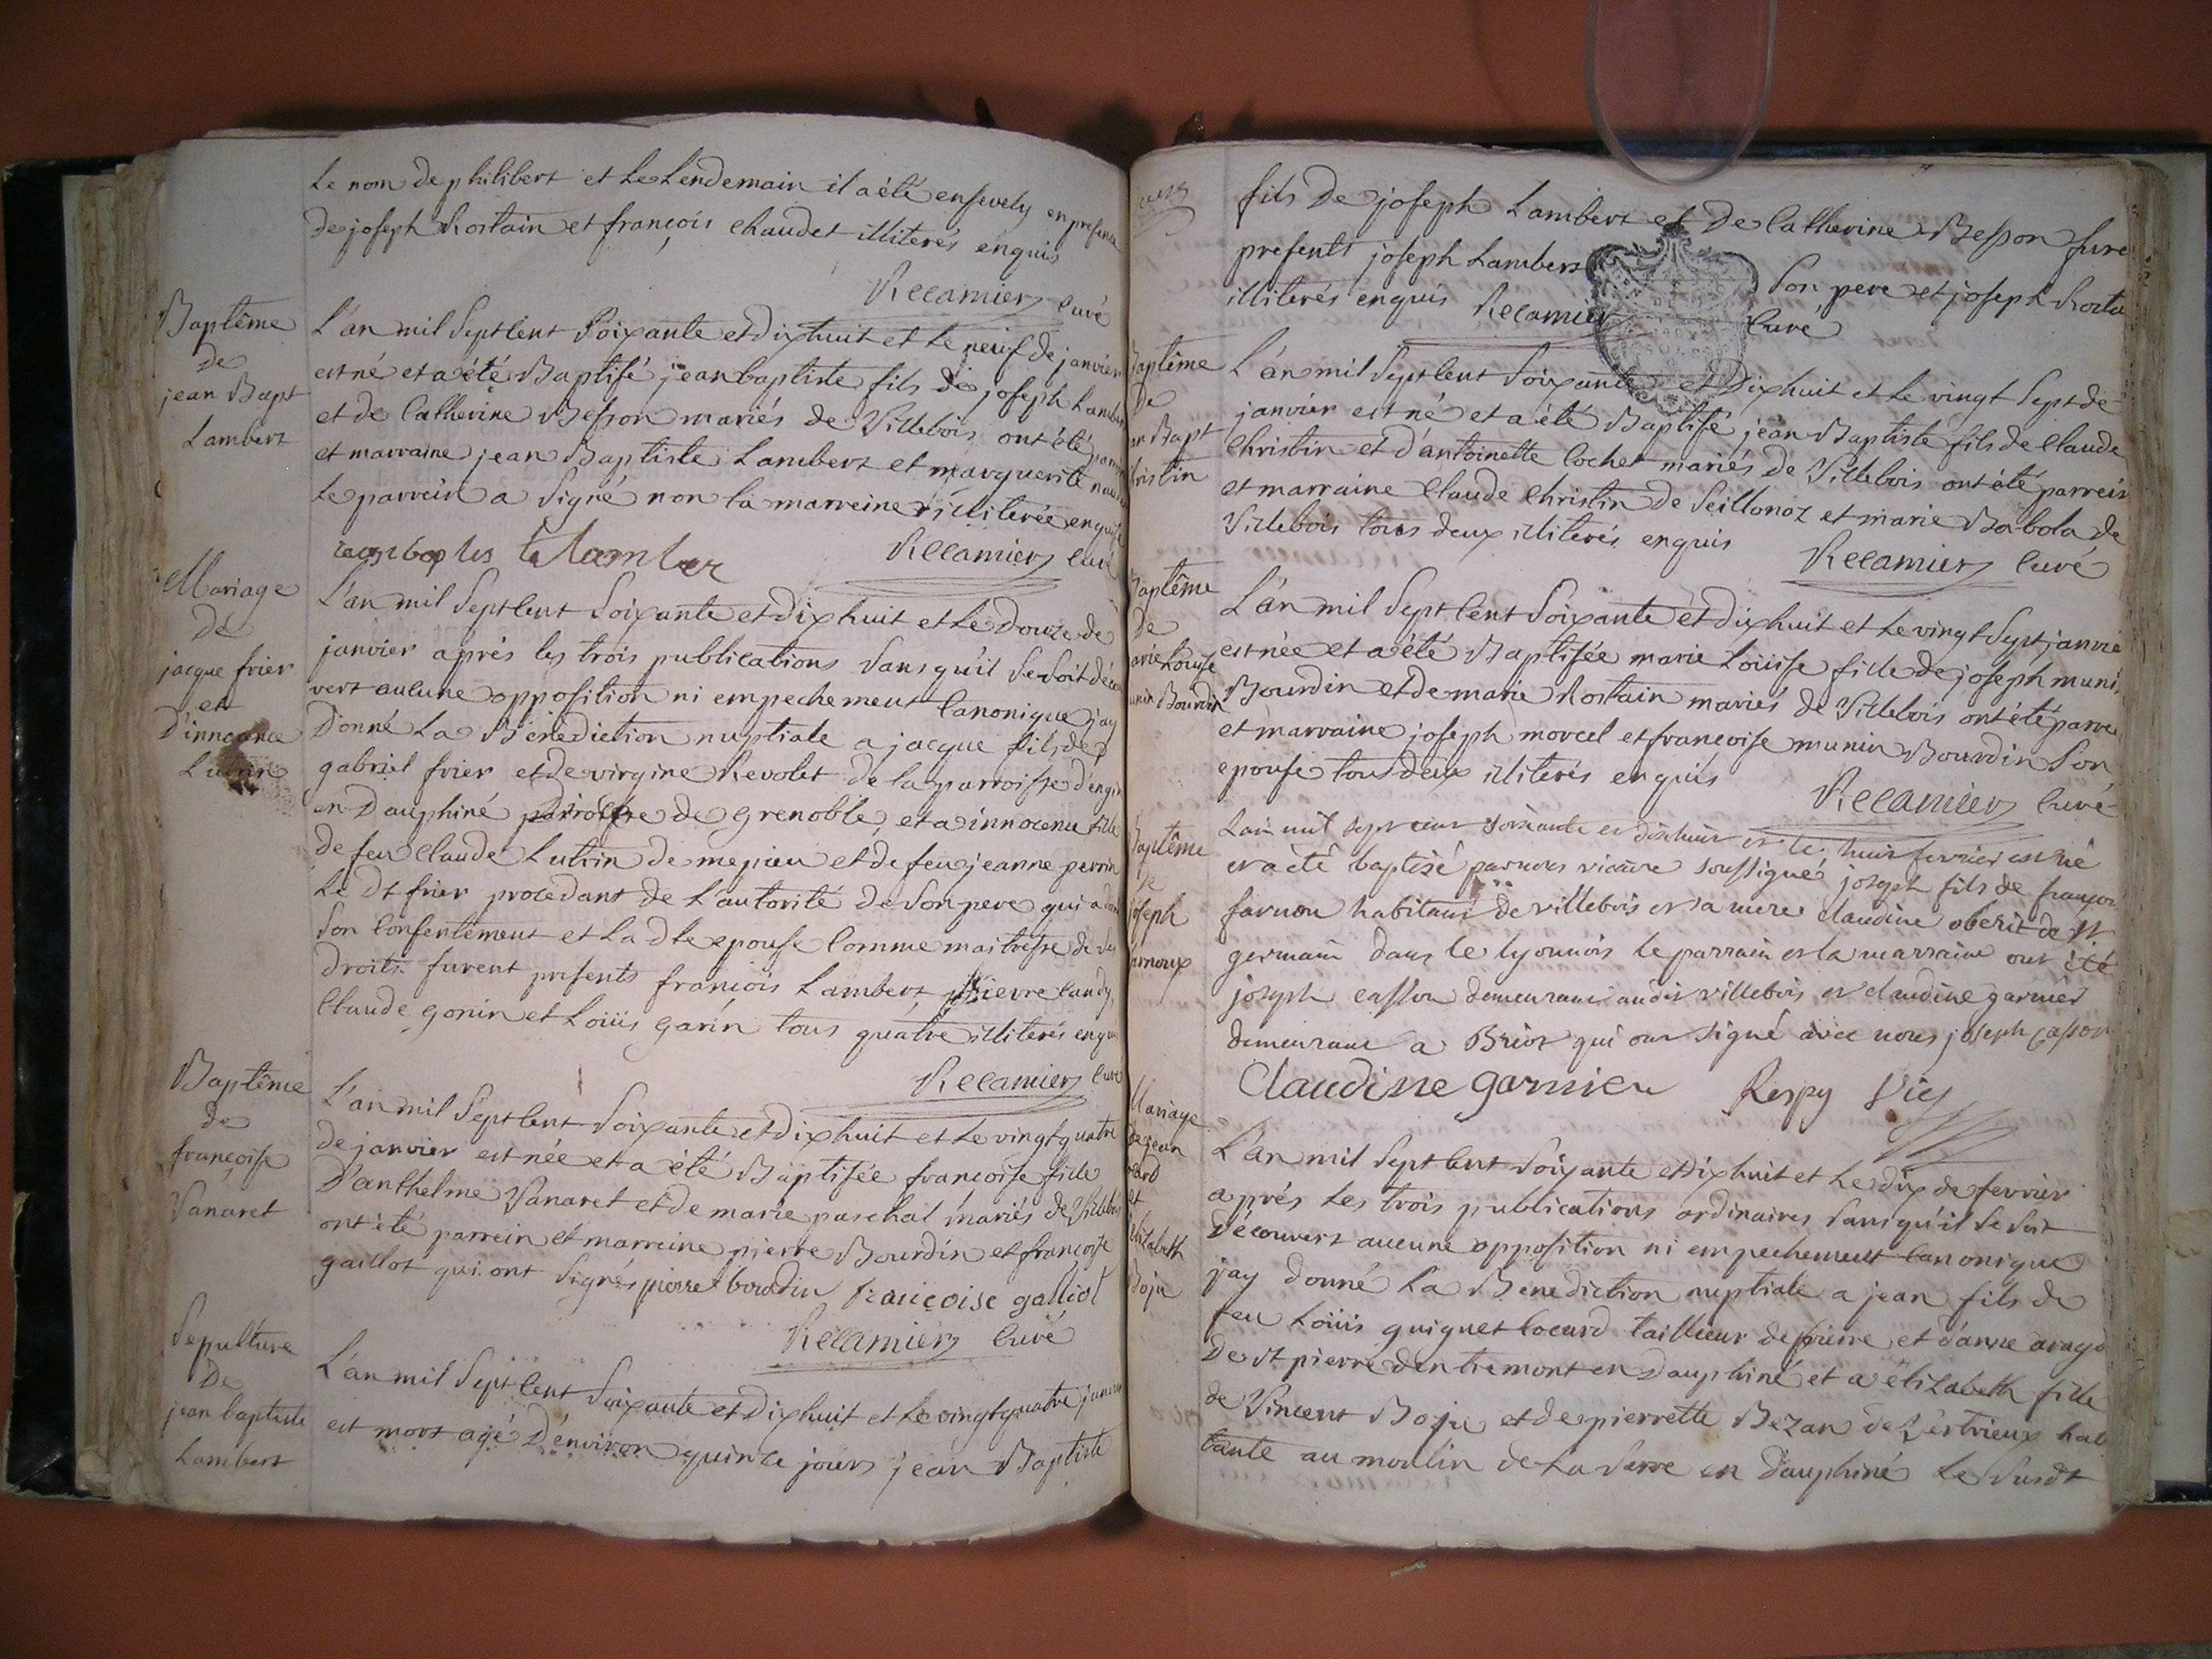 Le nom de philibert et Le Lendemain il a été ensevely en presence
de joseph Rostain et françois Chaudet illiterés enquis
Recamier Curé
Baptême
de
jean Bapt
Lambert
L'an mil Sept Cent Soixante et dixhuit et Le neuf de janvier
est né et a été Baptisé jean baptiste fils de joseph Lambert
et de Catherine Besson mariés de Villebois ont été
et marraine jean Baptiste Lambert et marguerite
Le parrein a Signé non la marreine illiterée enquise
Lamber
Recamier Curé
Mariage
de
jacque frier
et
D'innocence
Lutrin
L'an mil Sept Cent Soixante et dixhuit et Le douze de
janvier aprés les trois publications Sans qu'il Se Soit décou
vert aucune opposition ni empechement Canonique j'ay
Donné La Bénédiction nuptiale a jacque fils de
gabriel frier et de virgine Revolet de la parroisse d'engin
en Dauphiné de Grenoble, et a innocence fille
de feu Claude Lutrin de mepieu et de feu jeanne perrin
Le dt frier procedant de L'autorité de Son pere qui a
Son Consentement et La dte epouse Comme maitresse de Ses
Droits. furent presents francois Lambert pierre
Claude gonin et Loüis garin tous quatre illiterés enquis
Recamier Curé
Baptême
de
francoise
Vanaret
L'an mil Sept Cent Soixante et dixhuit et Le vingt quatre
de janvier est née et a été Baptisée francoise fille
D'anthelme Vanaret et de marie paschal mariés de Villebois
ont été parrein et marreine pierre Bourdin et francoise
gaillot qui ont Signés pierre bourdin françoise galliot
Recamier Curé
Sepulture
De
jean baptiste
Lambert
L'an mil Sept Cent Soixante et dixhuit et Le vingt quatre janvier
est mort agé D'environ quinze jours jean Baptiste
fils de joseph Lambert et De Catherine Besson fure
presents joseph Lambert Son pere et joseph Rosta
illiterés enquis Recamier Curé
Baptême
De
an Bapt
hristin
L'an mil Sept Cent Soixante et Dixhuit et Le vingt Sept de
janvier est né et a été Baptisé jean Baptiste fils de Claude
Christin et d'antoinette Cochet mariés de Villebois ont été parrein
et marraine Claude Christin de Seillonaz et marie Babola de
Villebois tous deux illiterés enquis
Recamier Curé
Baptême
De
arie Louise
unin Bourdin
L'an mil Sept Cent Soixante et dixhuit et Le vingt Sept janvie
est née et a été Baptisée marie Loüise fille de joseph muni
Bourdin et de marie Rostain mariés de Villebois ont été parrei
et marraine joseph morcel et francoise munin Bourdin Son
epouse tous deux illiterés enquis
Recamier Curé
Baptême
de
joseph
arnoux
Lan mil sept cent soixante et dixhuit et le huit fevrier est né
et a été baptisé par nous vicaire soussigné joseph fils de françois
habitant de villebois et sa mere claudine oberit de st.
germain dans le lyonnois le parrain et la marraine ont été
joseph casson demeurant audit villebois et claudine garnier
demeurant a Brior qui ont signé avec nous joseph Casson
Claudine garnier Respy Vic
Mariage
de jean
card
et
Elizabeth
Boju
L'an mil Sept Cent Soixante et dixhuit et Le dix de fevrier
aprés Les trois publications ordinaires Sans qu'il Se Soit
découvert aucune opposition ni empechement Canonique
j'ay donné La Benediction nuptiale a jean fils de
feu Loüis guiguet Cocard tailleur de pierre et d'anne
De St pierre d'entremont en Dauphiné et a élizabeth fille
de Vincent Boju et de pierrette Bezan de Lestrieux hab
tante au moulin de La Serre en Dauphiné Le Susdt